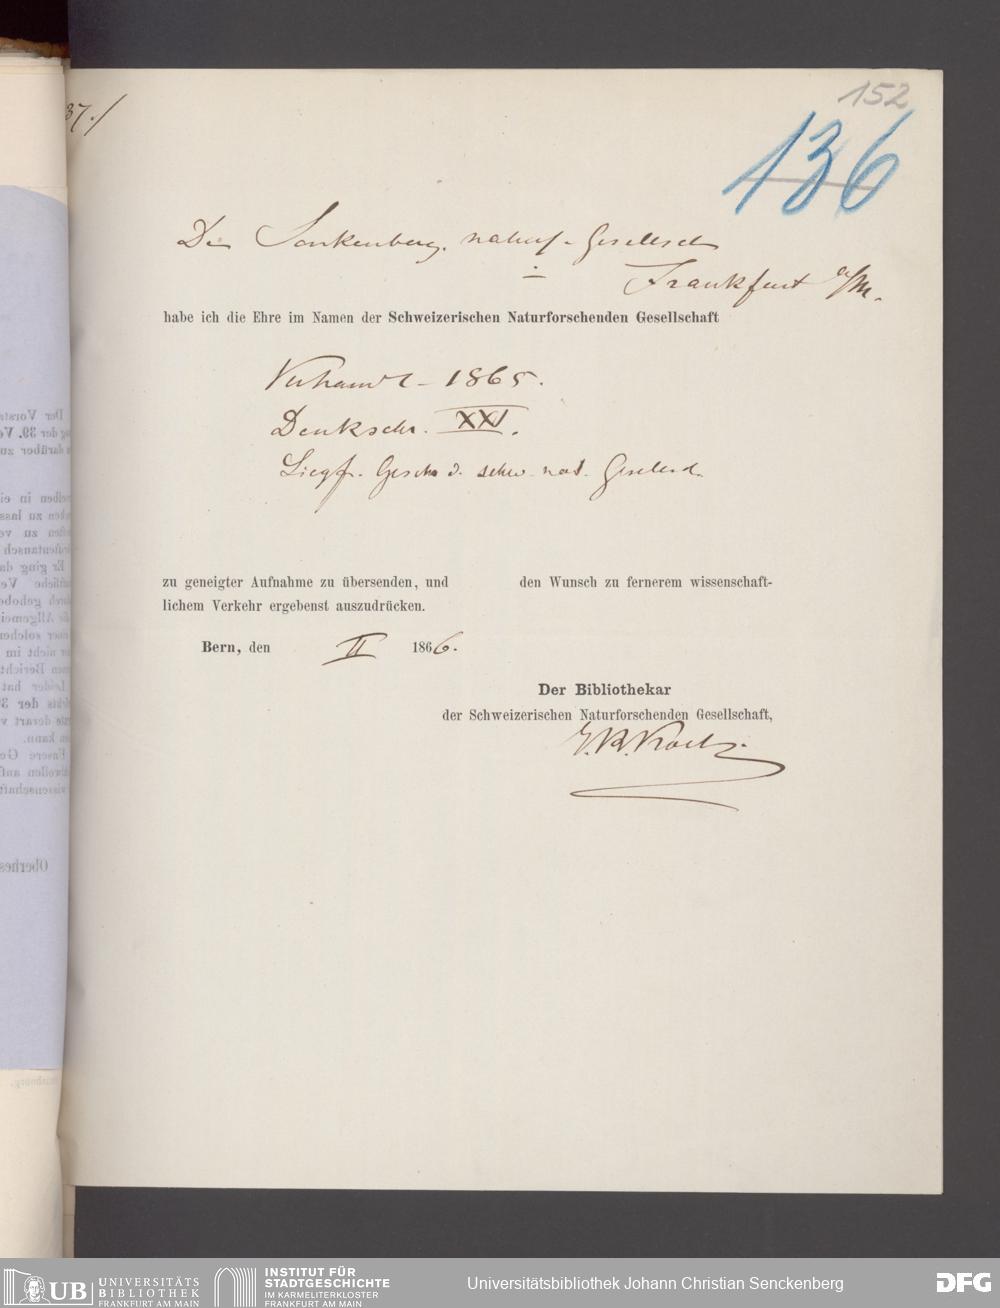 152
136
37./
Der Senkenberg. naturf. Gesellsch
Frankfurt a/M.
habe ich die Ehre im Namen der Schweizerischen Naturforschenden Gesellschaft
Verhandl - 1865.
Denkschr. XXI.
Siegfr. Gesch d. schw. nat. Gesellsch.
zu geneigter Aufnahme zu übersenden, und den Wunsch zu fernerem wissenschaft-
lichem Verkehr ergebenst auszudrücken.
Bern, den II 1866.
Der Bibliothekar
der Schweizerischen Naturforschenden Gesellschaft,
J. R. Koch.
UB UNIVERSITÄTS
BIBLIOTHEK
FRANKFURT AM MAIN
INSTITUT FÜR
STADTGESCHICHTE
IM KARMELITERKLOSTER
FRANKFURT AM MAIN
Universitätsbibliothek Johann Christian Senckenberg
DFG